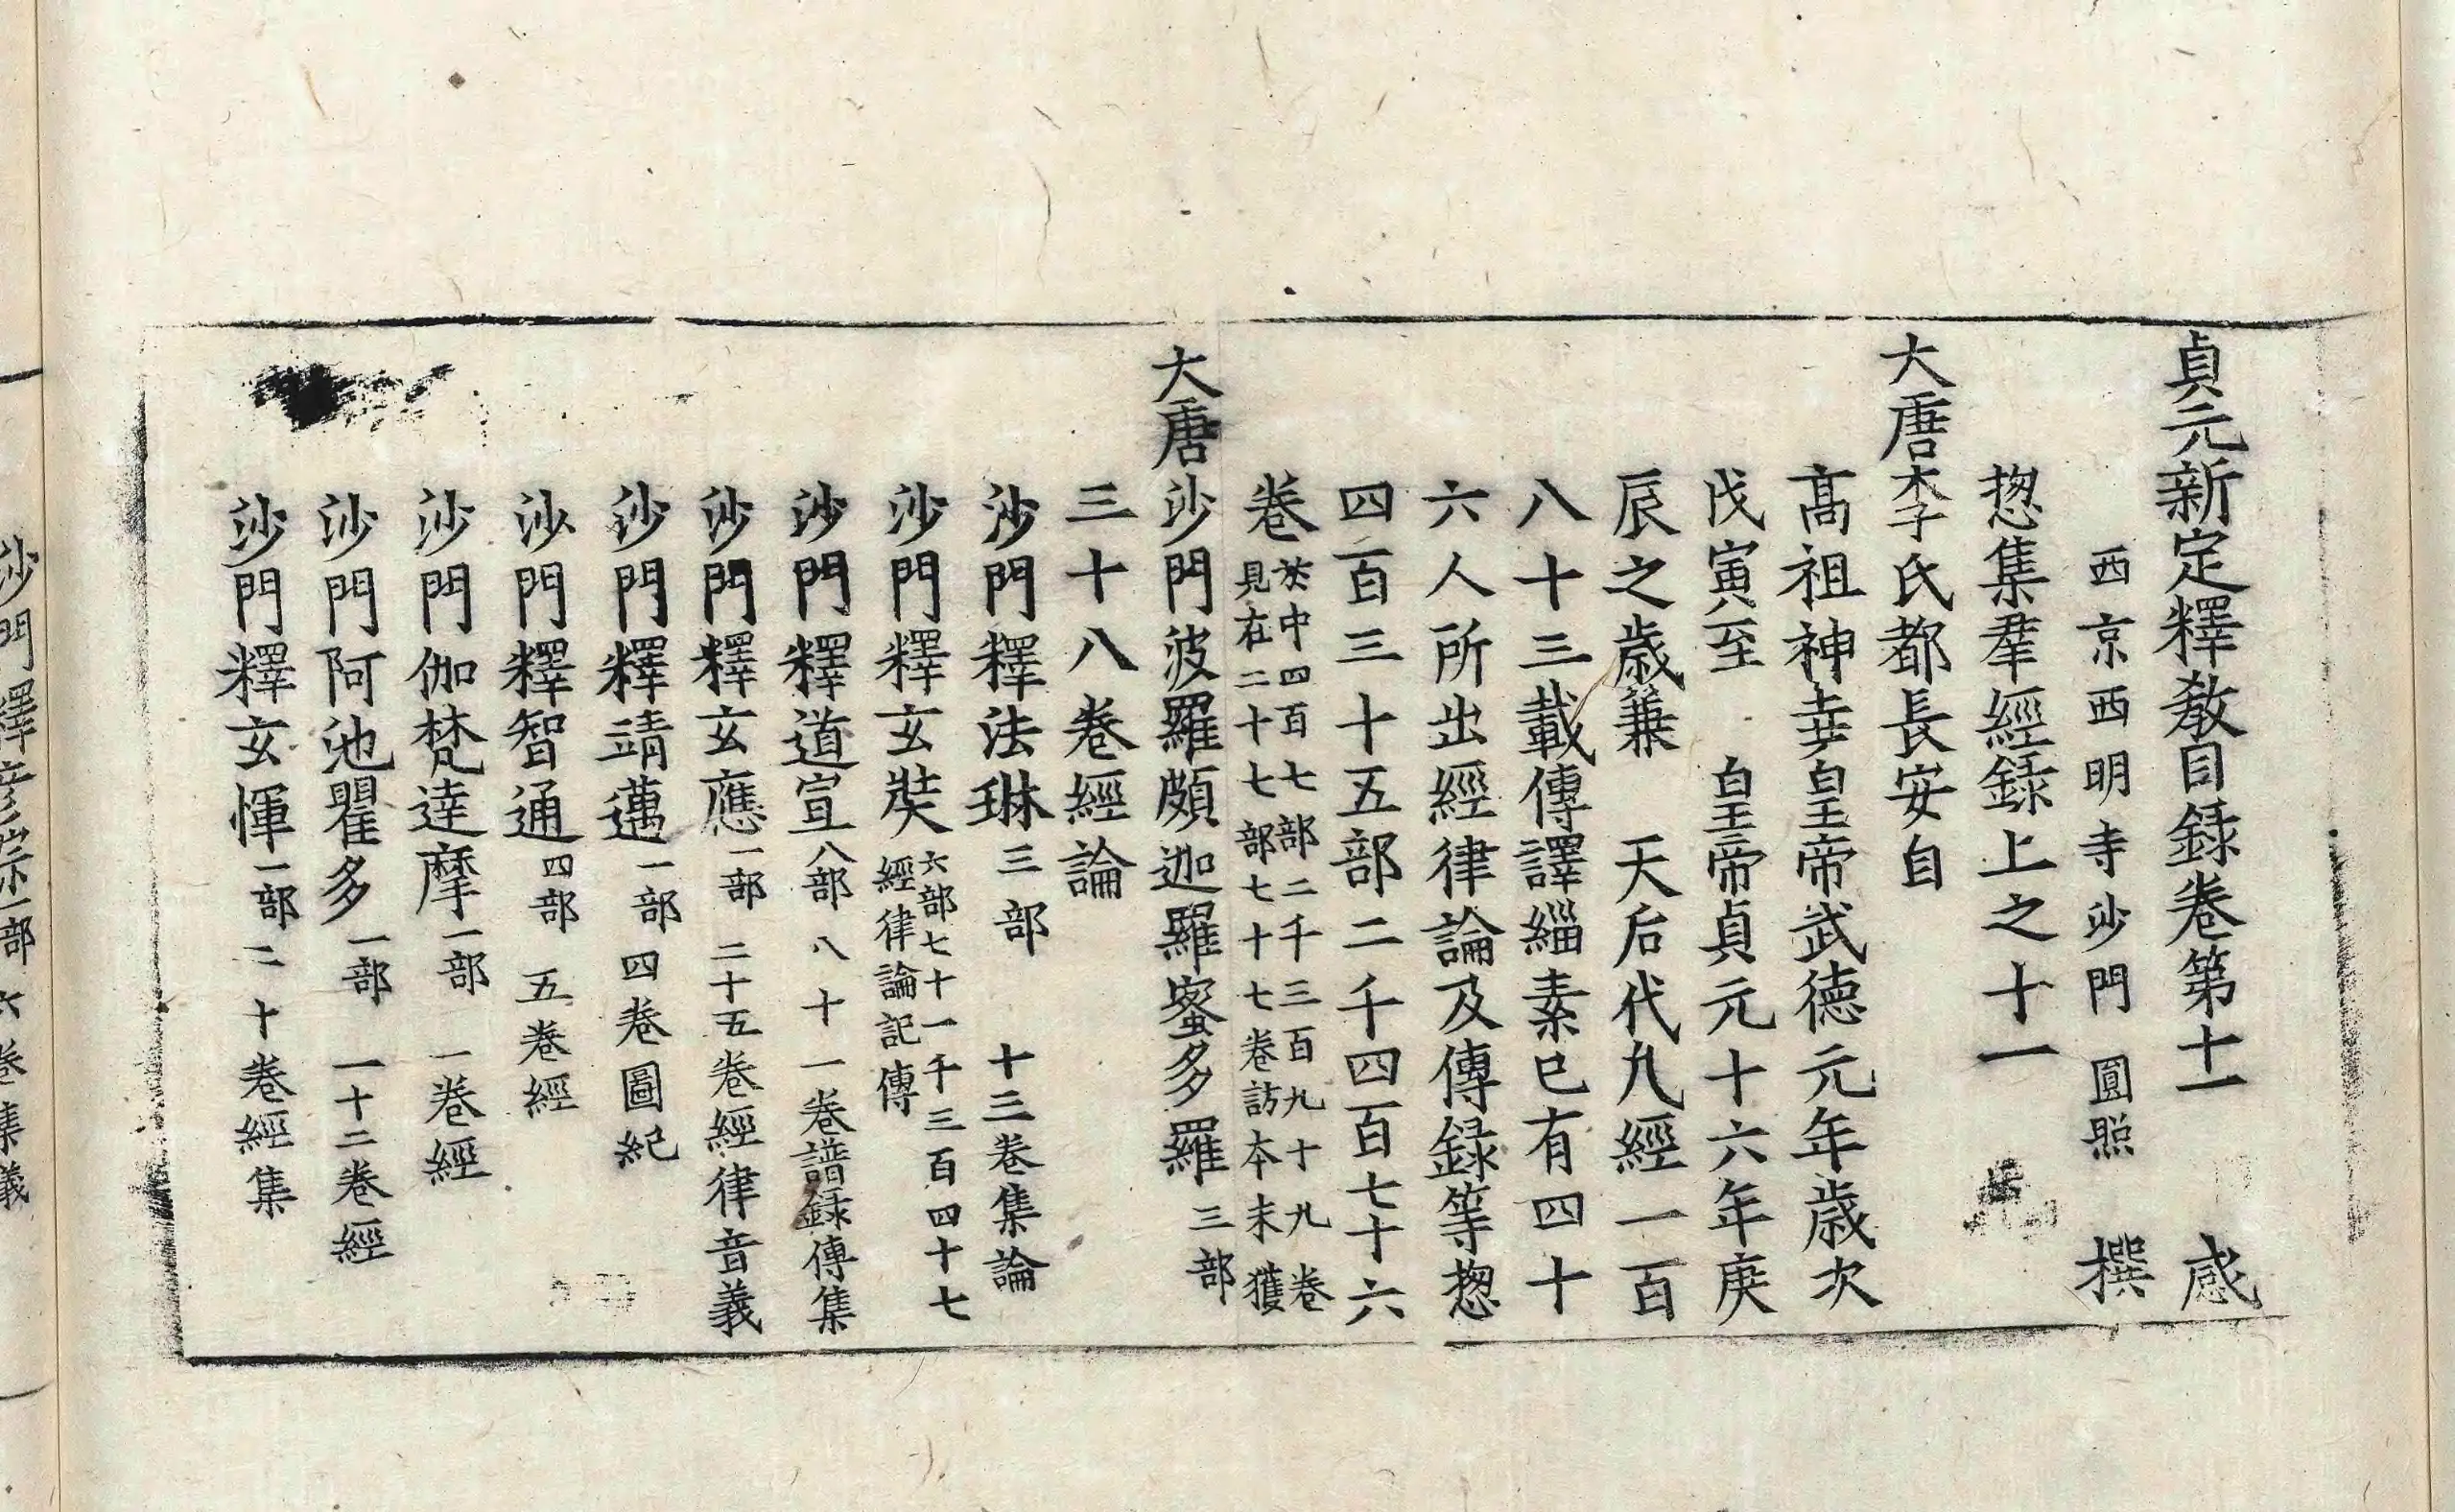 貞元新定釋教目録卷第十一　感
西京西明寺沙門　圓照　撰
揔集羣經録上之十一
大唐李氏都長安自
髙祖神堯皇帝武德元年歲次
戊寅至　皇帝貞元十六年庚
辰之歲兼　天后代凡經一百
八十三載傳譯緇素已有四十
六人所出經律論及傳録等揔
四百三十五部二千四百七十六
卷於中四百七部二千三百九十九卷
見在二十七部七十七卷訪本未獲
大唐沙門波羅頗迦羅蜜多羅三部
三十八卷經論
沙門釋法琳三部　十三卷集論
沙門釋玄奘六部七十一千三百四十七
經律論記傳
沙門釋道宣八部　八十一卷譜録傳集
沙門釋玄應一部　二十五卷經律音義
沙門釋靖邁一部　四卷圖紀
沙門釋智通四部　五卷經
沙門伽梵達摩一部　一卷經
沙門阿地瞿多一部　一十二卷經
沙門釋玄惲一部二十卷經集
沙門釋彦悰一部六卷集義